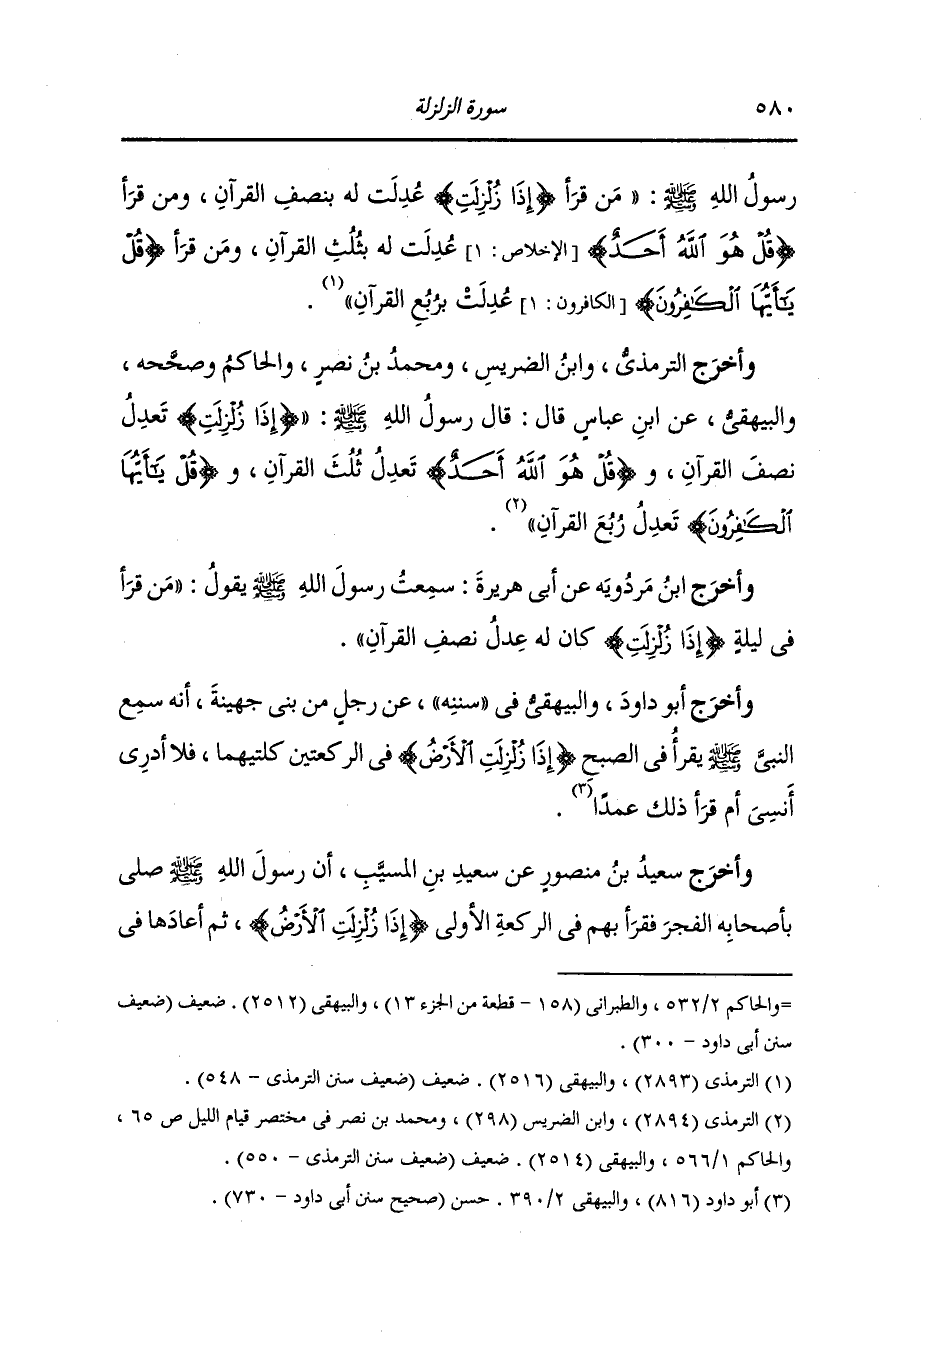 ٥٨٠ سورة الزلزلة
رسولُ اللهِ ﷺ : « مَن قرَأ ﴿إِذَا زُلْزِلَتِ﴾ عُدِلَت له بنصفِ القرآنِ ، ومن قرَأ
﴿قُلْ هُوَ ٱللَّهُ أَحَـدٌ﴾ [الإخلاص : ١] عُدِلَت له بثُلُثِ القرآنِ ، ومَن قرَأ ﴿قُلْ
يَـٰٓأَيُّهَا ٱلْكَـٰفِرُونَ﴾ [الكافرون : ١] عُدِلَتْ برُبُعِ القرآنِ»(١) .
وأخرَج الترمذىُّ ، وابنُ الضريسِ ، ومحمدُ بنُ نصرٍ ، والحاكمُ وصحَّحه ،
والبيهقىُّ ، عن ابنِ عباسٍ قال : قال رسولُ اللهِ ﷺ : «﴿إِذَا زُلْزِلَتِ﴾ تَعدِلُ
نصفَ القرآنِ ، و ﴿قُلْ هُوَ ٱللَّهُ أَحَـدٌ﴾ تَعدِلُ ثُلُثَ القرآنِ ، و ﴿قُلْ يَـٰٓأَيُّهَا
ٱلْكَـٰفِرُونَ﴾ تَعدِلُ رُبُعَ القرآنِ»(٢) .
وأخرَج ابنُ مَردُويَه عن أبى هريرةَ : سمِعتُ رسولَ اللهِ ﷺ يقولُ : «مَن قرَأ
فى ليلةٍ ﴿إِذَا زُلْزِلَتِ﴾ كان له عِدلُ نصفِ القرآنِ» .
وأخرَج أبو داودَ ، والبيهقىُّ فى «سننِه» ، عن رجلٍ من بنى جهينةَ ، أنه سمِع
النبىَّ ﷺ يقرأُ فى الصبحِ ﴿إِذَا زُلْزِلَتِ ٱلْأَرْضُ﴾ فى الركعتين كلتيهما ، فلا أدرِى
أَنسِىَ أم قرَأ ذلك عمدًا(٣) .
وأخرَج سعيدُ بنُ منصورٍ عن سعيدِ بنِ المسيَّبِ ، أن رسولَ اللهِ ﷺ صلى
بأصحابِه الفجرَ فقرَأ بهم فى الركعةِ الأولى ﴿إِذَا زُلْزِلَتِ ٱلْأَرْضُ﴾ ، ثم أعادَها فى
=والحاكم ٥٣٢/٢ ، والطبرانى (١٥٨ - قطعة من الجزء ١٣) ، والبيهقى (٢٥١٢) . ضعيف (ضعيف
سنن أبى داود - ٣٠٠) .
(١) الترمذى (٢٨٩٣) ، والبيهقى (٢٥١٦) . ضعيف (ضعيف سنن الترمذى - ٥٤٨) .
(٢) الترمذى (٢٨٩٤) ، وابن الضريس (٢٩٨) ، ومحمد بن نصر فى مختصر قيام الليل ص ٦٥ ،
والحاكم ٥٦٦/١ ، والبيهقى (٢٥١٤) . ضعيف (ضعيف سنن الترمذى - ٥٥٠) .
(٣) أبو داود (٨١٦) ، والبيهقى ٣٩٠/٢ . حسن (صحيح سنن أبى داود - ٧٣٠) .